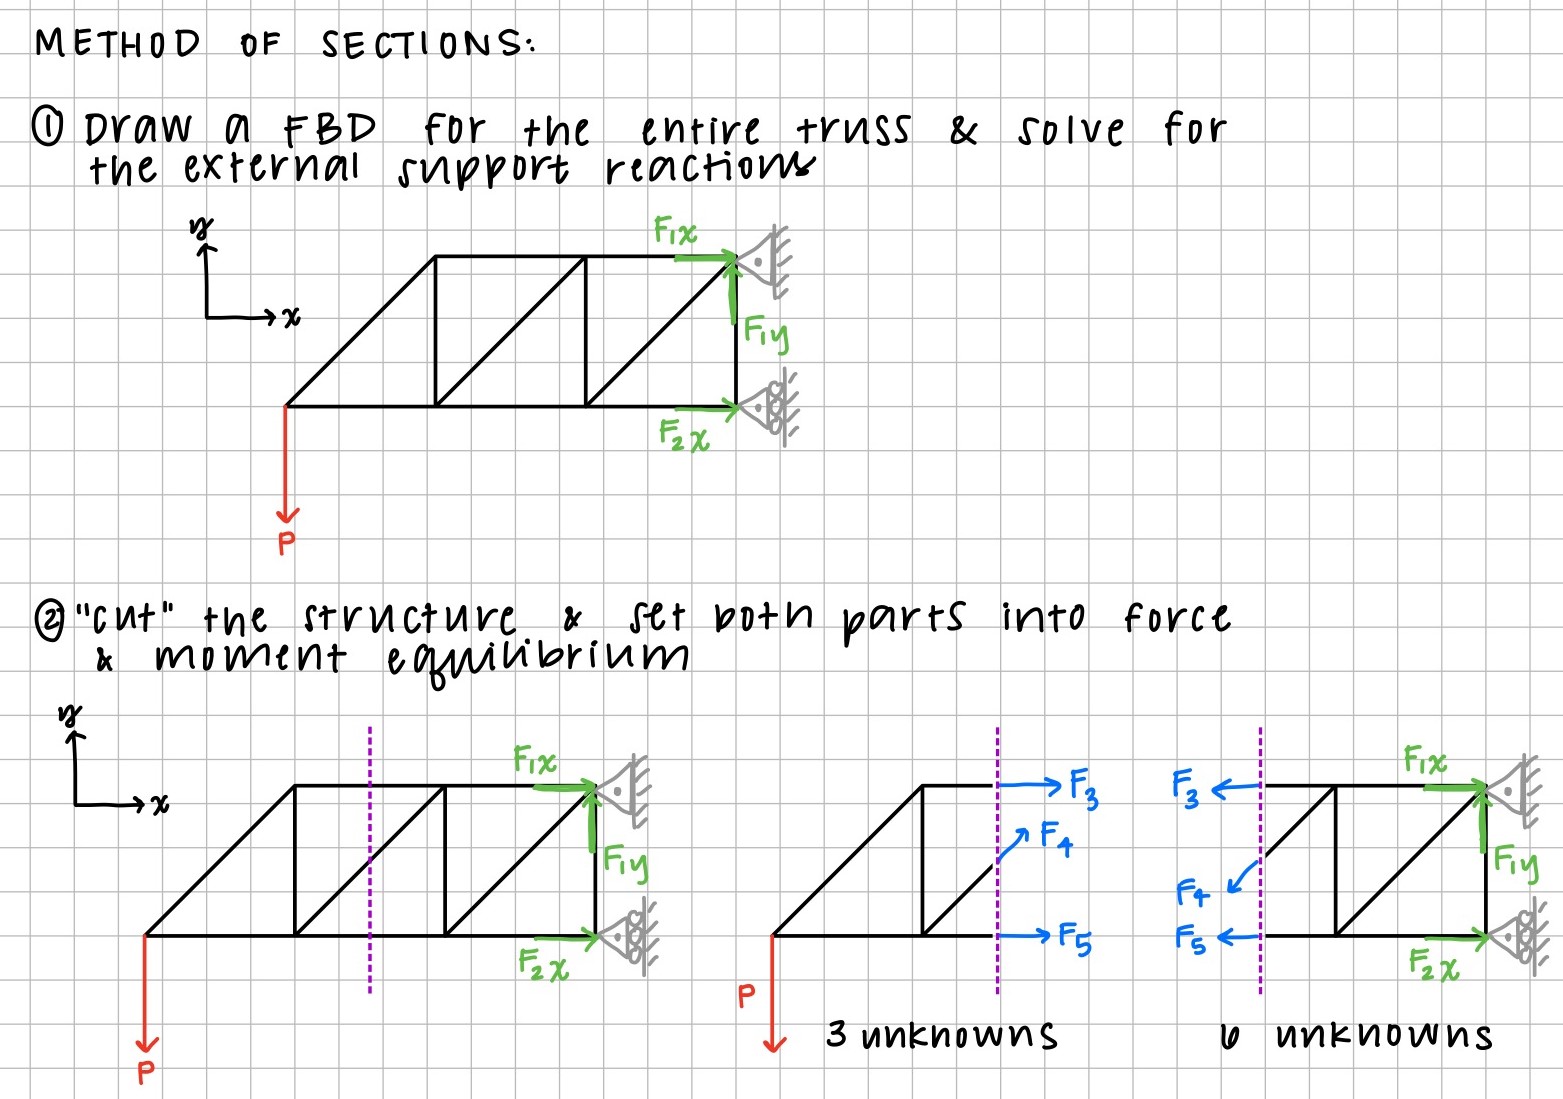 METHOD OF SECTIONS:
① Draw a FBD for the entire truss & solve for
the external support reactions
y
F1x
x
F1y
F2x
P
② "cut" the structure & set both parts into force
& moment equilibrium
y
F1x
x
F1y
F2x
P
F3
F4
F5
P
3 unknowns
F3
F1x
F4
F1y
F5
F2x
6 unknowns